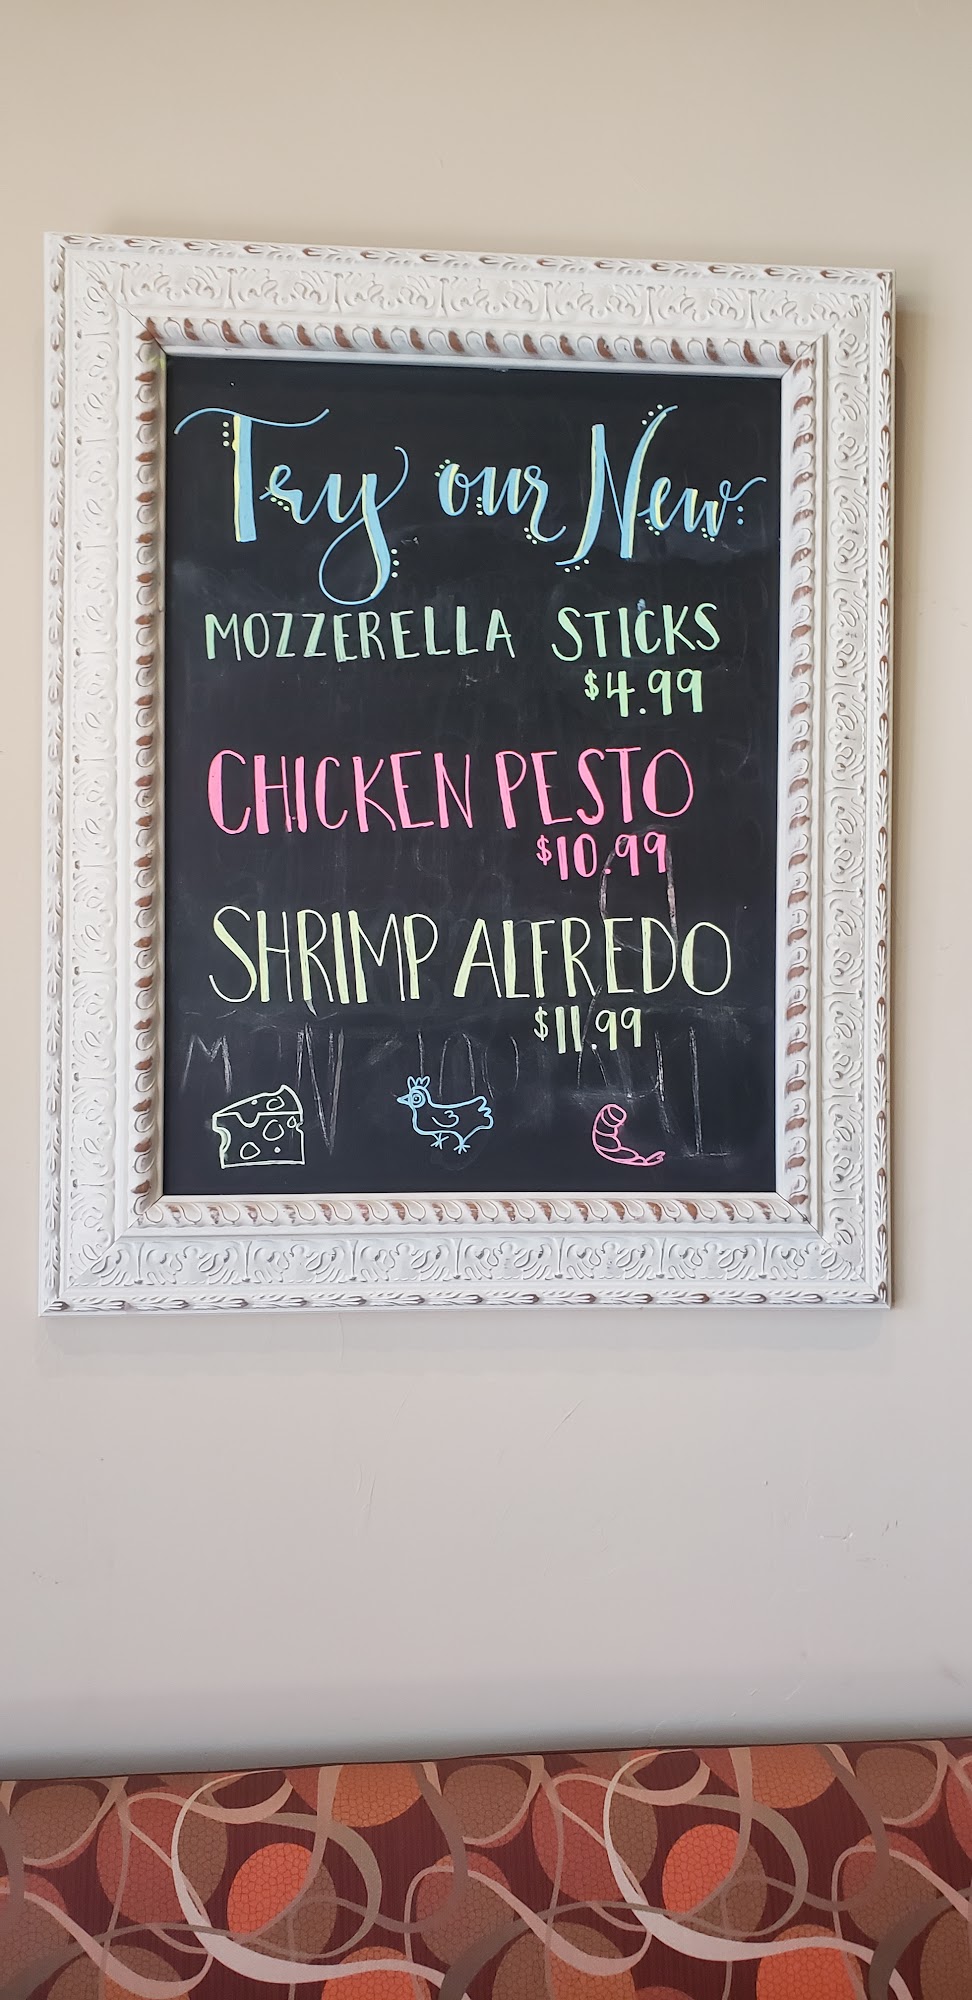 Try our New
MOZZERELLA STICKS
$4.99
CHICKEN PESTO
$10.99
SHRIMP ALFREDO
$11.99